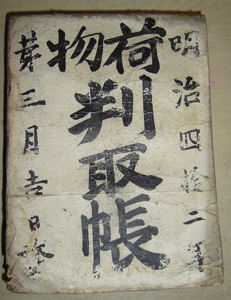 明治四拾二年
荷物
判取帳
第三月吉日